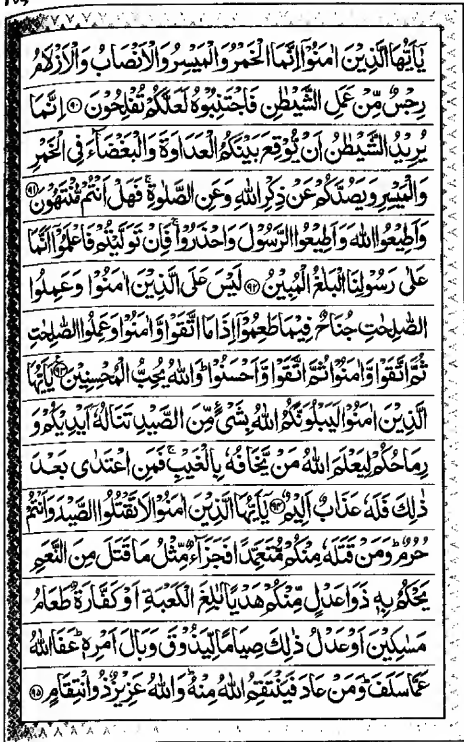 يٰٓاَيُّهَا الَّذِيْنَ اٰمَنُوْٓا اِنَّمَا الْخَمْرُ وَالْمَيْسِرُ وَالْاَنْصَابُ وَالْاَزْلَامُ
رِجْسٌ مِّنْ عَمَلِ الشَّيْطٰنِ فَاجْتَنِبُوْهُ لَعَلَّكُمْ تُفْلِحُوْنَ ۝۹۰ اِنَّمَا
يُرِيْدُ الشَّيْطٰنُ اَنْ يُّوْقِعَ بَيْنَكُمُ الْعَدَاوَةَ وَالْبَغْضَآءَ فِى الْخَمْرِ
وَالْمَيْسِرِ وَيَصُدَّكُمْ عَنْ ذِكْرِ اللّٰهِ وَعَنِ الصَّلٰوةِ ۚ فَهَلْ اَنْتُمْ مُّنْتَهُوْنَ ۝۹۱
وَاَطِيْعُوا اللّٰهَ وَاَطِيْعُوا الرَّسُوْلَ وَاحْذَرُوْا ۚ فَاِنْ تَوَلَّيْتُمْ فَاعْلَمُوْٓا اَنَّمَا
عَلٰى رَسُوْلِنَا الْبَلٰغُ الْمُبِيْنُ ۝۹۲ لَيْسَ عَلَى الَّذِيْنَ اٰمَنُوْا وَعَمِلُوا
الصّٰلِحٰتِ جُنَاحٌ فِيْمَا طَعِمُوْٓا اِذَا مَا اتَّقَوْا وَّاٰمَنُوْا وَعَمِلُوا الصّٰلِحٰتِ
ثُمَّ اتَّقَوْا وَّاٰمَنُوْا ثُمَّ اتَّقَوْا وَّاَحْسَنُوْا ؕ وَاللّٰهُ يُحِبُّ الْمُحْسِنِيْنَ ۝۹۳ يٰٓاَيُّهَا
الَّذِيْنَ اٰمَنُوْا لَيَبْلُوَنَّكُمُ اللّٰهُ بِشَىْءٍ مِّنَ الصَّيْدِ تَنَالُهٗٓ اَيْدِيْكُمْ وَ
رِمَاحُكُمْ لِيَعْلَمَ اللّٰهُ مَنْ يَّخَافُهٗ بِالْغَيْبِ ۚ فَمَنِ اعْتَدٰى بَعْدَ
ذٰلِكَ فَلَهٗ عَذَابٌ اَلِيْمٌ ۝۹۴ يٰٓاَيُّهَا الَّذِيْنَ اٰمَنُوْا لَا تَقْتُلُوا الصَّيْدَ وَاَنْتُمْ
حُرُمٌ ؕ وَمَنْ قَتَلَهٗ مِنْكُمْ مُّتَعَمِّدًا فَجَزَآءٌ مِّثْلُ مَا قَتَلَ مِنَ النَّعَمِ
يَحْكُمُ بِهٖ ذَوَا عَدْلٍ مِّنْكُمْ هَدْيًاۢ بٰلِغَ الْكَعْبَةِ اَوْ كَفَّارَةٌ طَعَامُ
مَسٰكِيْنَ اَوْ عَدْلُ ذٰلِكَ صِيَامًا لِّيَذُوْقَ وَبَالَ اَمْرِهٖ ؕ عَفَا اللّٰهُ
عَمَّا سَلَفَ ؕ وَمَنْ عَادَ فَيَنْتَقِمُ اللّٰهُ مِنْهُ ؕ وَاللّٰهُ عَزِيْزٌ ذُو انْتِقَامٍ ۝۹۵